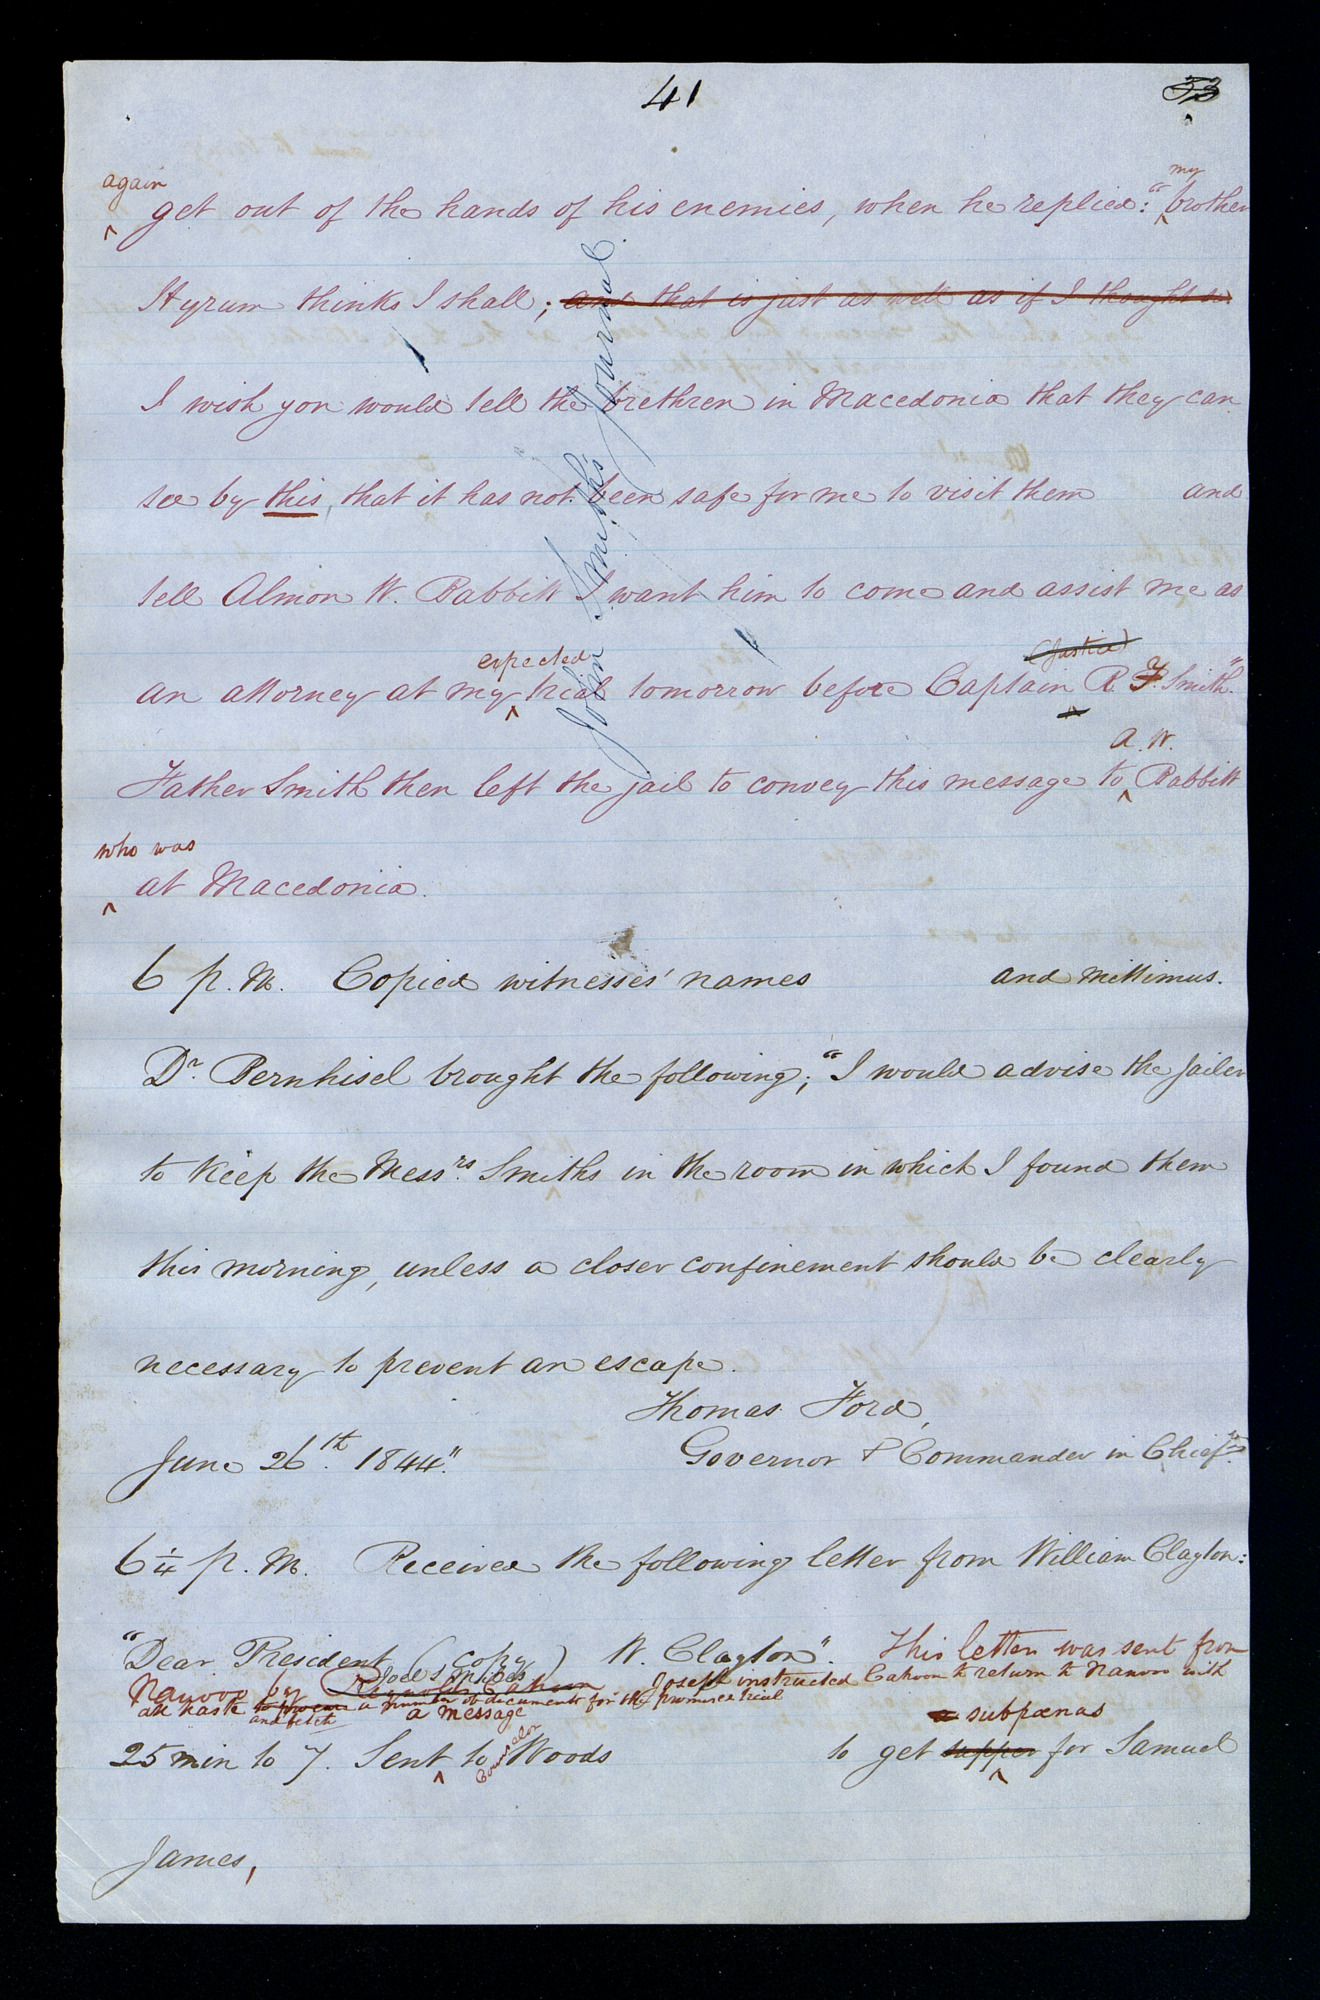 41
33
again my
get out of the hands of his enemies, when he replied: "brother
Hyrum thinks I shall; and that is just as well as if I thought so.
I wish you would tell the brethren in Macedonia that they can
see by this, that it has not been safe for me to visit them and
tell Almon W. Babbitt I want him to come and assist me as
expected (Justice)
an attorney at my trial tomorrow before Captain R. F. Smith."
A. W.
Father Smith then left the jail to convey this message to Babbitt
who was
at Macedonia.
John Smith's Journal.
6 p. M. Copied witnesses' names and mittimus.
Dr. Bernhisel brought the following; "I would advise the jailer
to keep the Messrs. Smiths in the room in which I found them
this morning, unless a closer confinement should be clearly
necessary to prevent an escape.
Thomas Ford,
June 26th. 1844." Governor & Commander in Chief."
6 1/4 p. M. Received the following letter from William Clayton:
"Dear President (copy) W. Clayton". This letter was sent from
Joel S. Miles
Nauvoo by Reynolds Cahoon Joseph instructed Cahoon to return to Nauvoo with
all haste to a number of documents for the promised trial
and fetch a message a subpœnas
25 min to 7. Sent to Counselor Woods to get supper for Samuel
James,